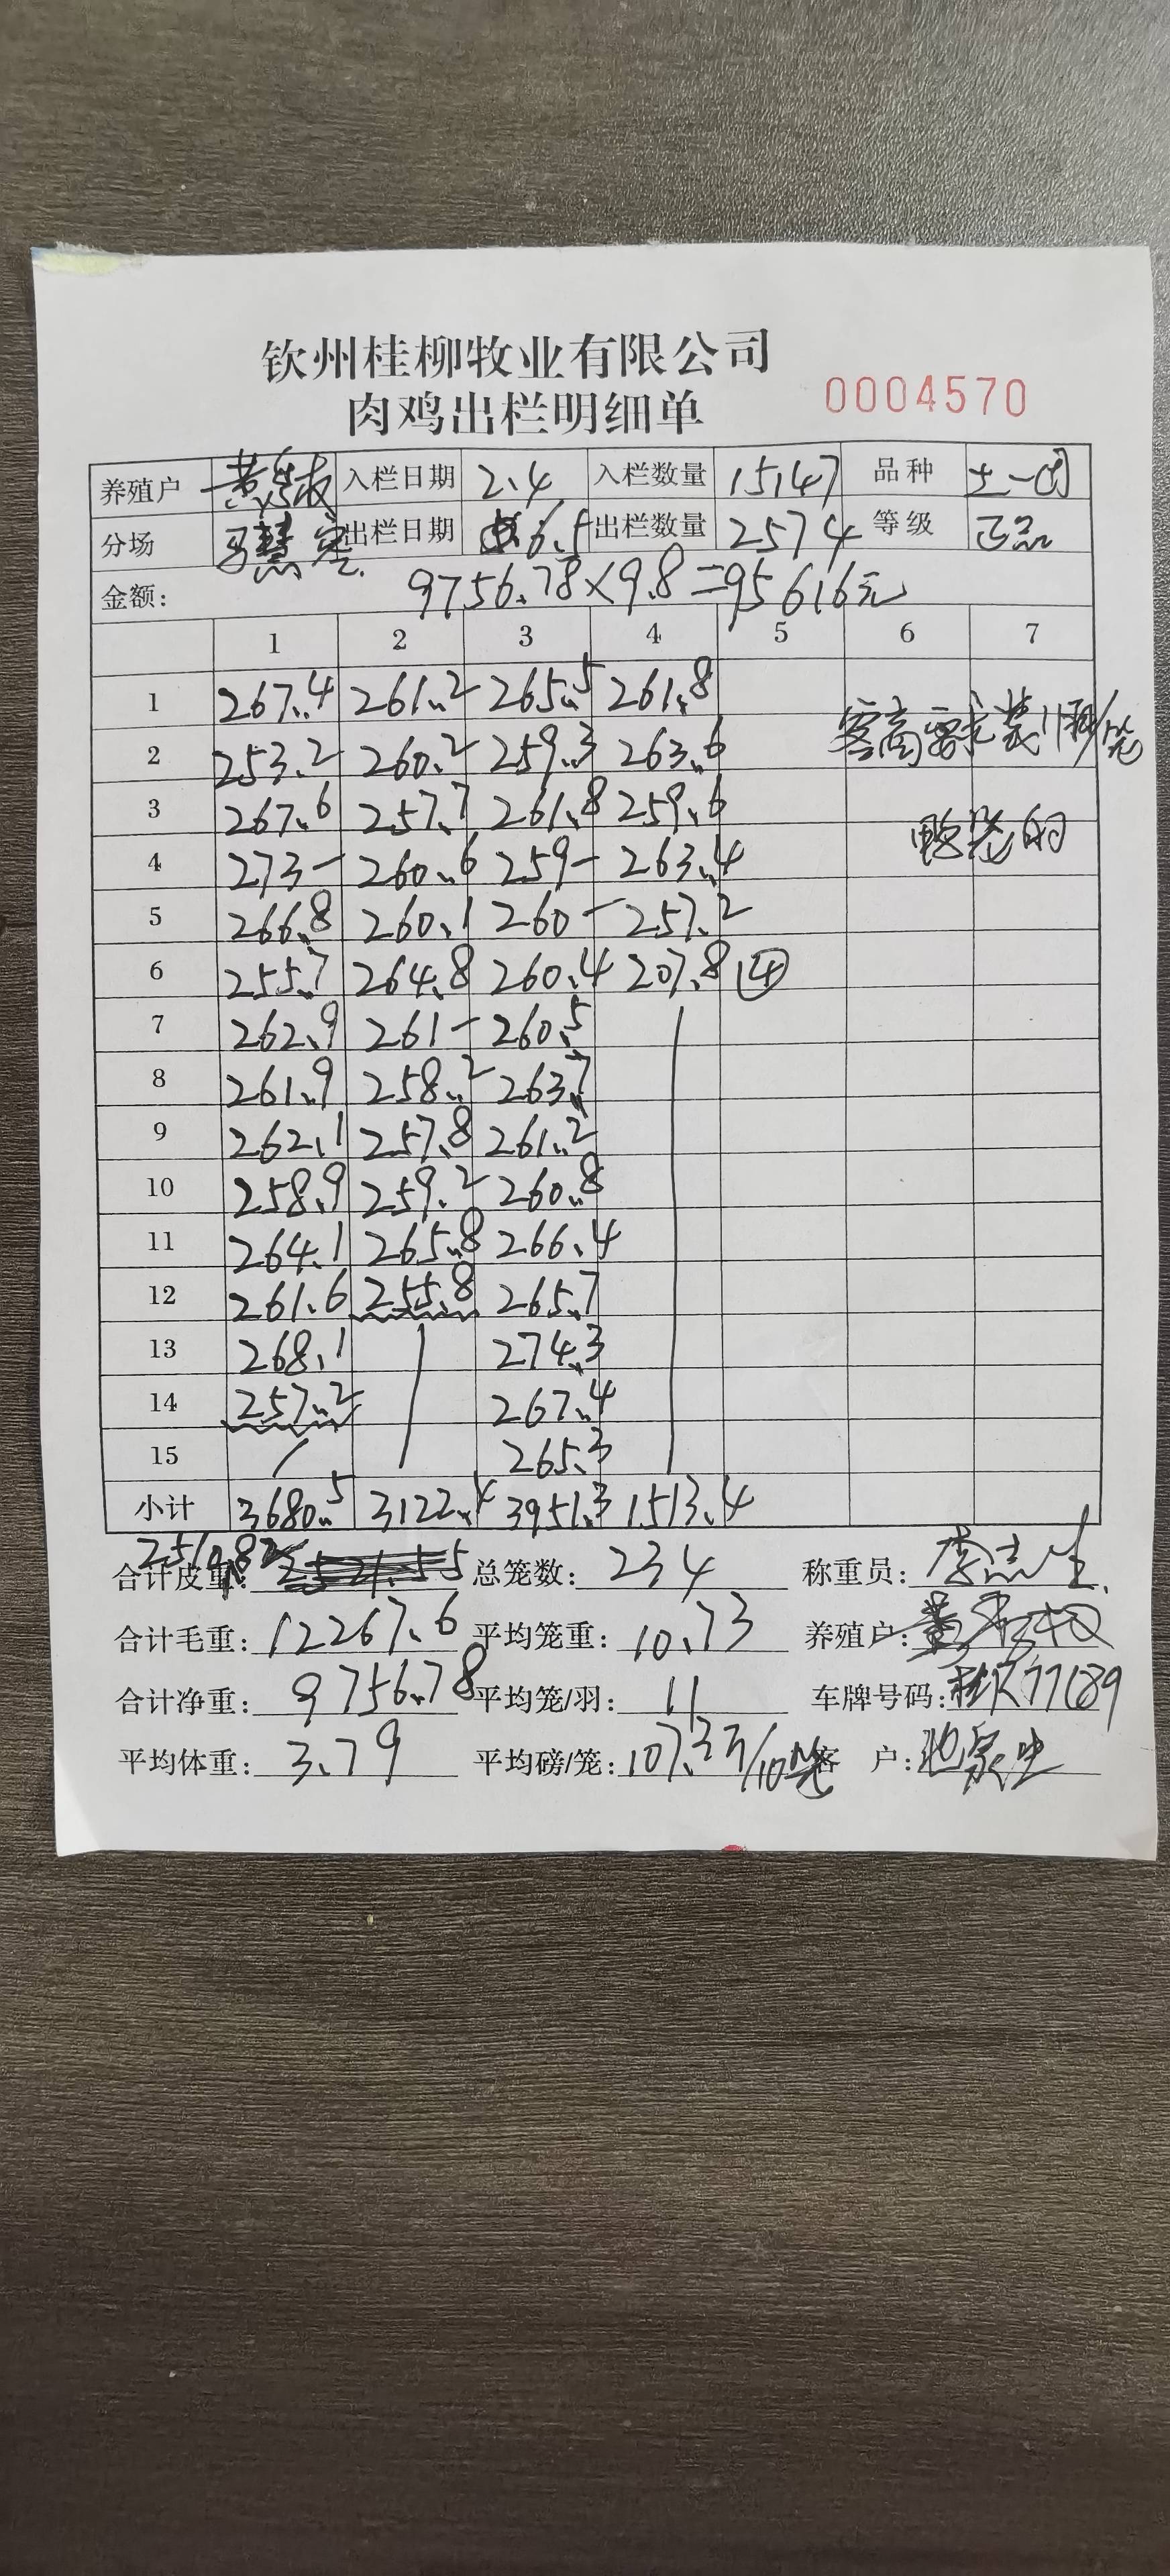 钦州桂柳牧业有限公司
肉鸡出栏明细单 0004570
养殖户 黄 入栏日期 2.4 入栏数量 15147 品种 土一
分场 冯慧 出栏日期 6.5 出栏数量 2574 等级 正品
金额: 9756.78×9.8=95616元
1 2 3 4 5 6 7
1 267.4 261.2 265.5 261.8
2 253.2 260.2 259.3 263.6 客商要求装11
3 267.6 257.7 261.8 259.6
4 273- 260.6 259- 263.4 的
5 266.8 260.1 260- 257.2
6 255.7 264.8 260.4 207.8 ④
7 262.9 261- 260.5
8 261.9 258.2 263.7
9 262.1 257.8 261.2
10 258.9 259.2 260.8
11 264.1 265.8 266.4
12 261.6 255.8 265.7
13 268.1 274.3
14 257.2 267.4
15 265.3
小计 3680.5 3122.4 3951.3 1513.4
合计皮重: 2510.82 总笼数: 234 称重员: 李志生
合计毛重: 12267.6 平均笼重: 10.73 养殖户: 黄
合计净重: 9756.78 平均笼/羽: 11 车牌号码: 77689
平均体重: 3.79 平均磅/笼: 107.3 /10笼 客户: